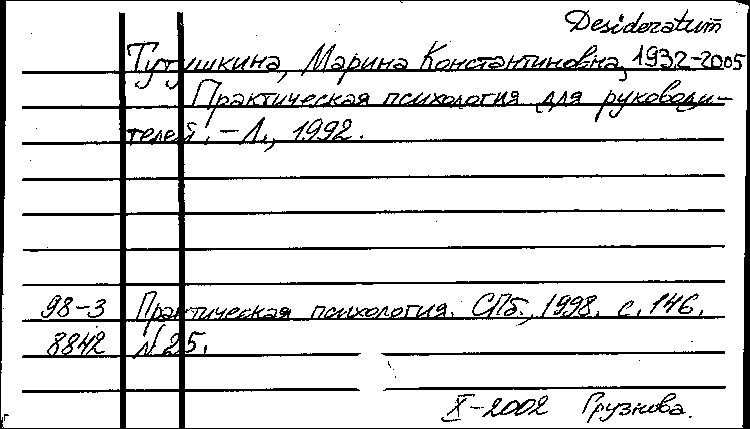 Desideratum
Тутушкина, Марина Константиновна, 1932-2005
Практическая психология для руководи-
телей. - Л., 1992.
98-3 Практическая психология. СПб., 1998. с. 146.
8842 N 25.
X-2002 Грузнова.